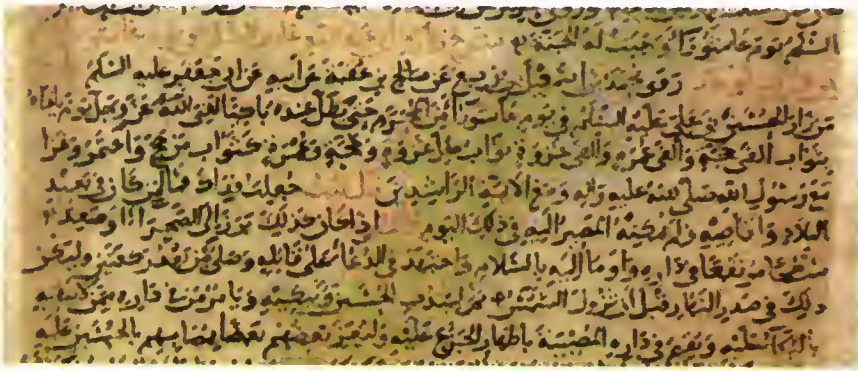 السلم يوم عاشورا وجبت له الجنة
روى محمد بن اسمعيل بن بزيع عن صالح بن عقبة عن ابيه عن ابى جعفر عليه السلم
من زار الحسين بن على عليه السلم فى يوم عاشورا من المحرم حتى يظل عنده باكيا لقى الله عز وجل يوم يلقاه
بثواب الفى حجة والفى عمرة والفى غزوة ثواب كل غزوة وحجة وعمرة كثواب من حج واعتمر وغزا
مع رسول الله صلى الله عليه واله ومع الائمة الراشدين قلت جعلت فداك فما لمن كان فى بعيد
البلاد واقاصيه ولم يمكنه المصير اليه فى ذلك اليوم قال اذا كان كذلك برز الى الصحرا او صعد
سطحا مرتفعا فى داره واوما اليه بالسلام واجتهد فى الدعا على قاتله وصلى من بعد ركعتين وليكن
ذلك فى صدر النهار قبل ان تزول الشمس ثم ليندب الحسين ويبكيه ويامر من فى داره ممن لا يتقيه
بالبكا عليه ويقيم فى داره المصيبة باظهار الجزع عليه وليعز بعضهم بعضا بمصابهم بالحسين عليه